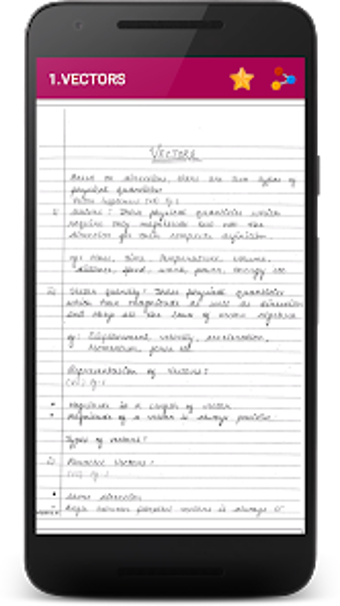 1.VECTORS
VECTORS
Based on direction, there are two types of
physical quantities
1) Scalars : Those physical quantities which
require only magnitude but not the
direction for their complete definition.
eg: mass, time, temperature, volume,
distance, speed, work, power, energy etc
2) Vector quantity : Those physical quantities
which have magnitude as well as direction
and obey all the laws of vector algebra
eg: Displacement, velocity, acceleration,
Momentum, force etc
Representation of Vectors :
• Magnitude is a length of vector
• Magnitude of a vector is always positive
Types of vectors :
1) Parallel Vectors :
• Same direction
• Angle between parallel vectors is always 0°